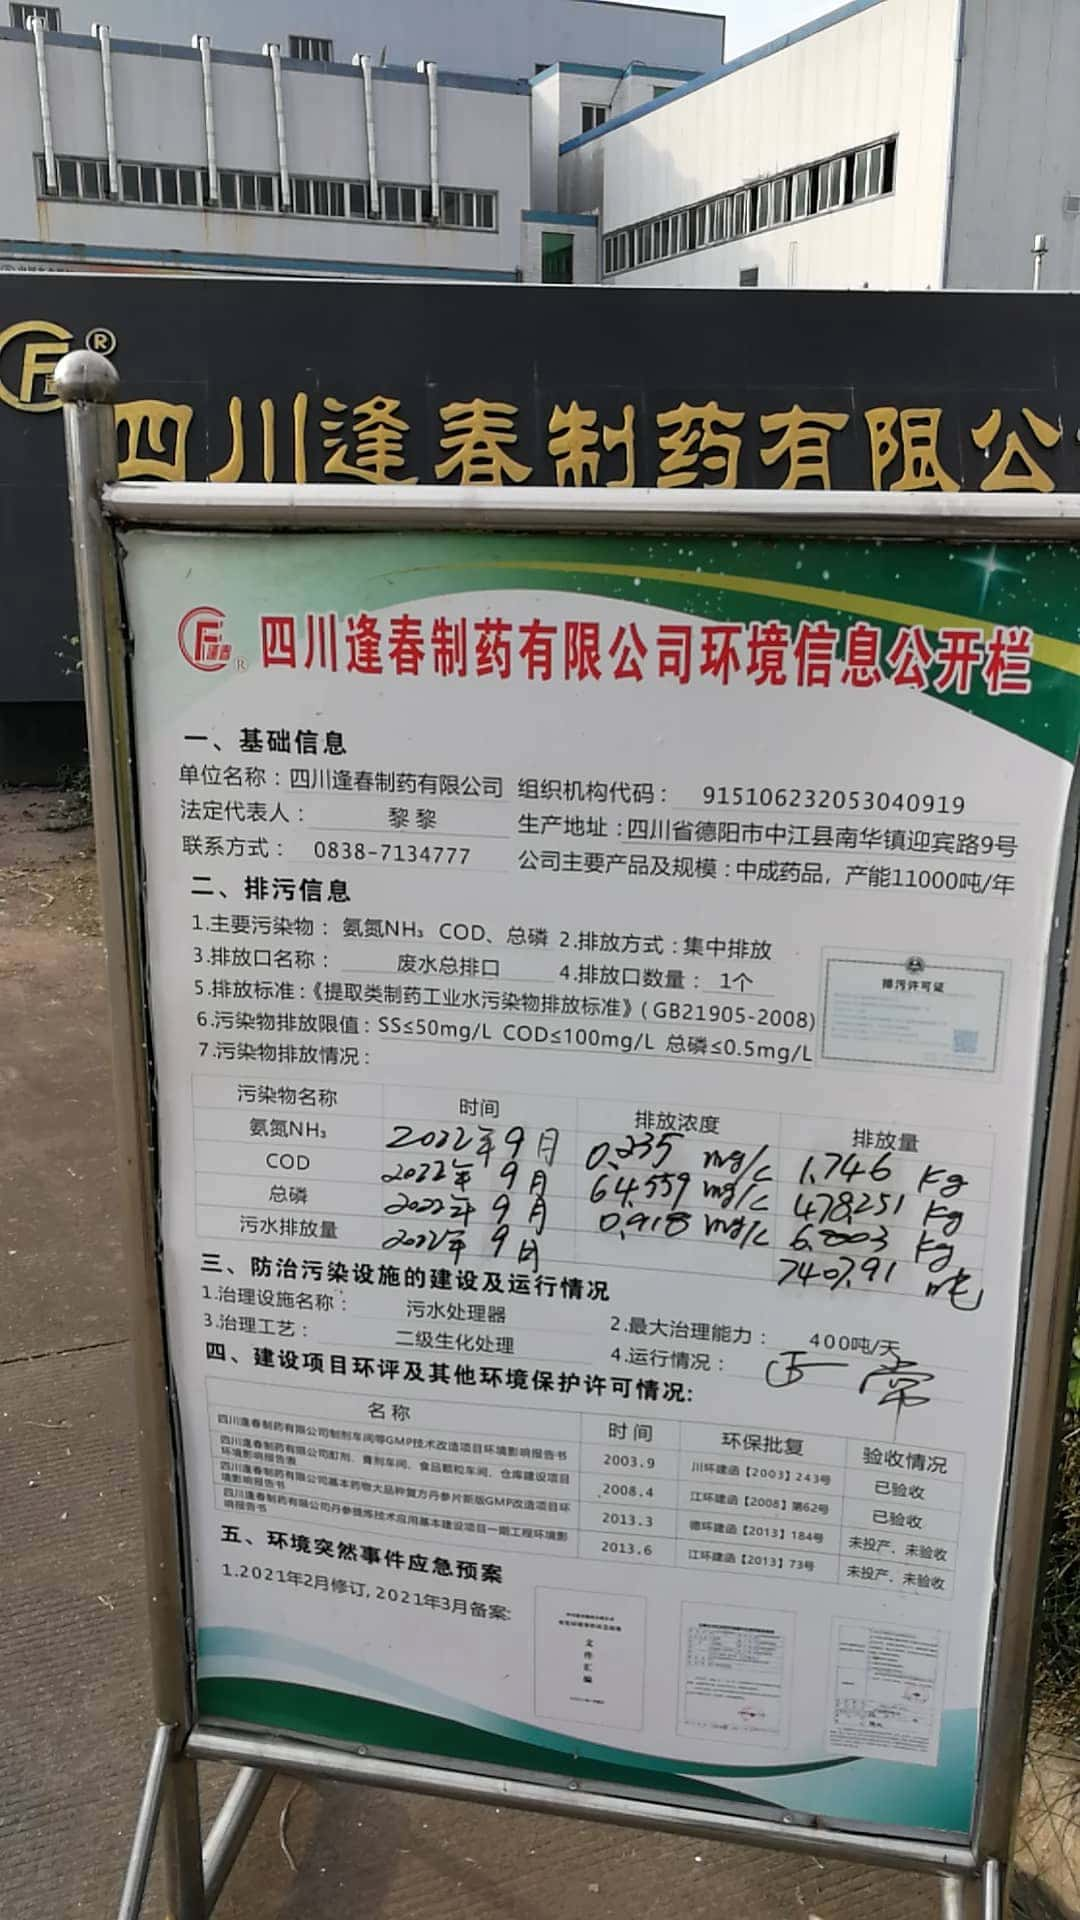 四川逢春制药有限公
四川逢春制药有限公司环境信息公开栏
一、基础信息
单位名称：四川逢春制药有限公司 组织机构代码： 915106232053040919
法定代表人： 黎黎 生产地址：四川省德阳市中江县南华镇迎宾路9号
联系方式： 0838-7134777 公司主要产品及规模：中成药品，产能11000吨/年
二、排污信息
1.主要污染物： 氨氮NH₃ COD、总磷 2.排放方式：集中排放
3.排放口名称： 废水总排口 4.排放口数量： 1个
5.排放标准：《提取类制药工业水污染物排放标准》( GB21905-2008)
6.污染物排放限值：SS≤50mg/L COD≤100mg/L 总磷≤0.5mg/L
排污许可证
7.污染物排放情况：
污染物名称 时间 排放浓度 排放量
氨氮NH₃ 2022年9月 0.235 mg/L 1.746 kg
COD 2022年9月 64.559 mg/L 478.251 kg
总磷 2022年9月 0.918 mg/L kg
污水排放量 2022年9月 7407.91 吨
三、防治污染设施的建设及运行情况
1.治理设施名称： 污水处理器 2.最大治理能力： 400吨/天
3.治理工艺： 二级生化处理 4.运行情况： 正常
四、建设项目环评及其他环境保护许可情况:
名 称 时 间 环保批复 验收情况
四川逢春制药有限公司制剂车间等GMP技术改造项目环境影响报告书 2003.9 川环建函【2003】243号 已验收
四川逢春制药有限公司酊剂、膏剂车间、食品颗粒车间、仓库建设项目
环境影响报告表 2008.4 江环建函【2008】第62号 已验收
四川逢春制药有限公司基本药物大品种复方丹参片新版GMP改造项目环
境影响报告书 2013.3 德环建函【2013】184号 未投产、未验收
四川逢春制药有限公司丹参提炼技术应用基本建设项目一期工程环境影
响报告书 2013.6 江环建函【2013】73号 未投产、未验收
五、环境突然事件应急预案
1.2021年2月修订, 2021年3月备案:
文件汇编